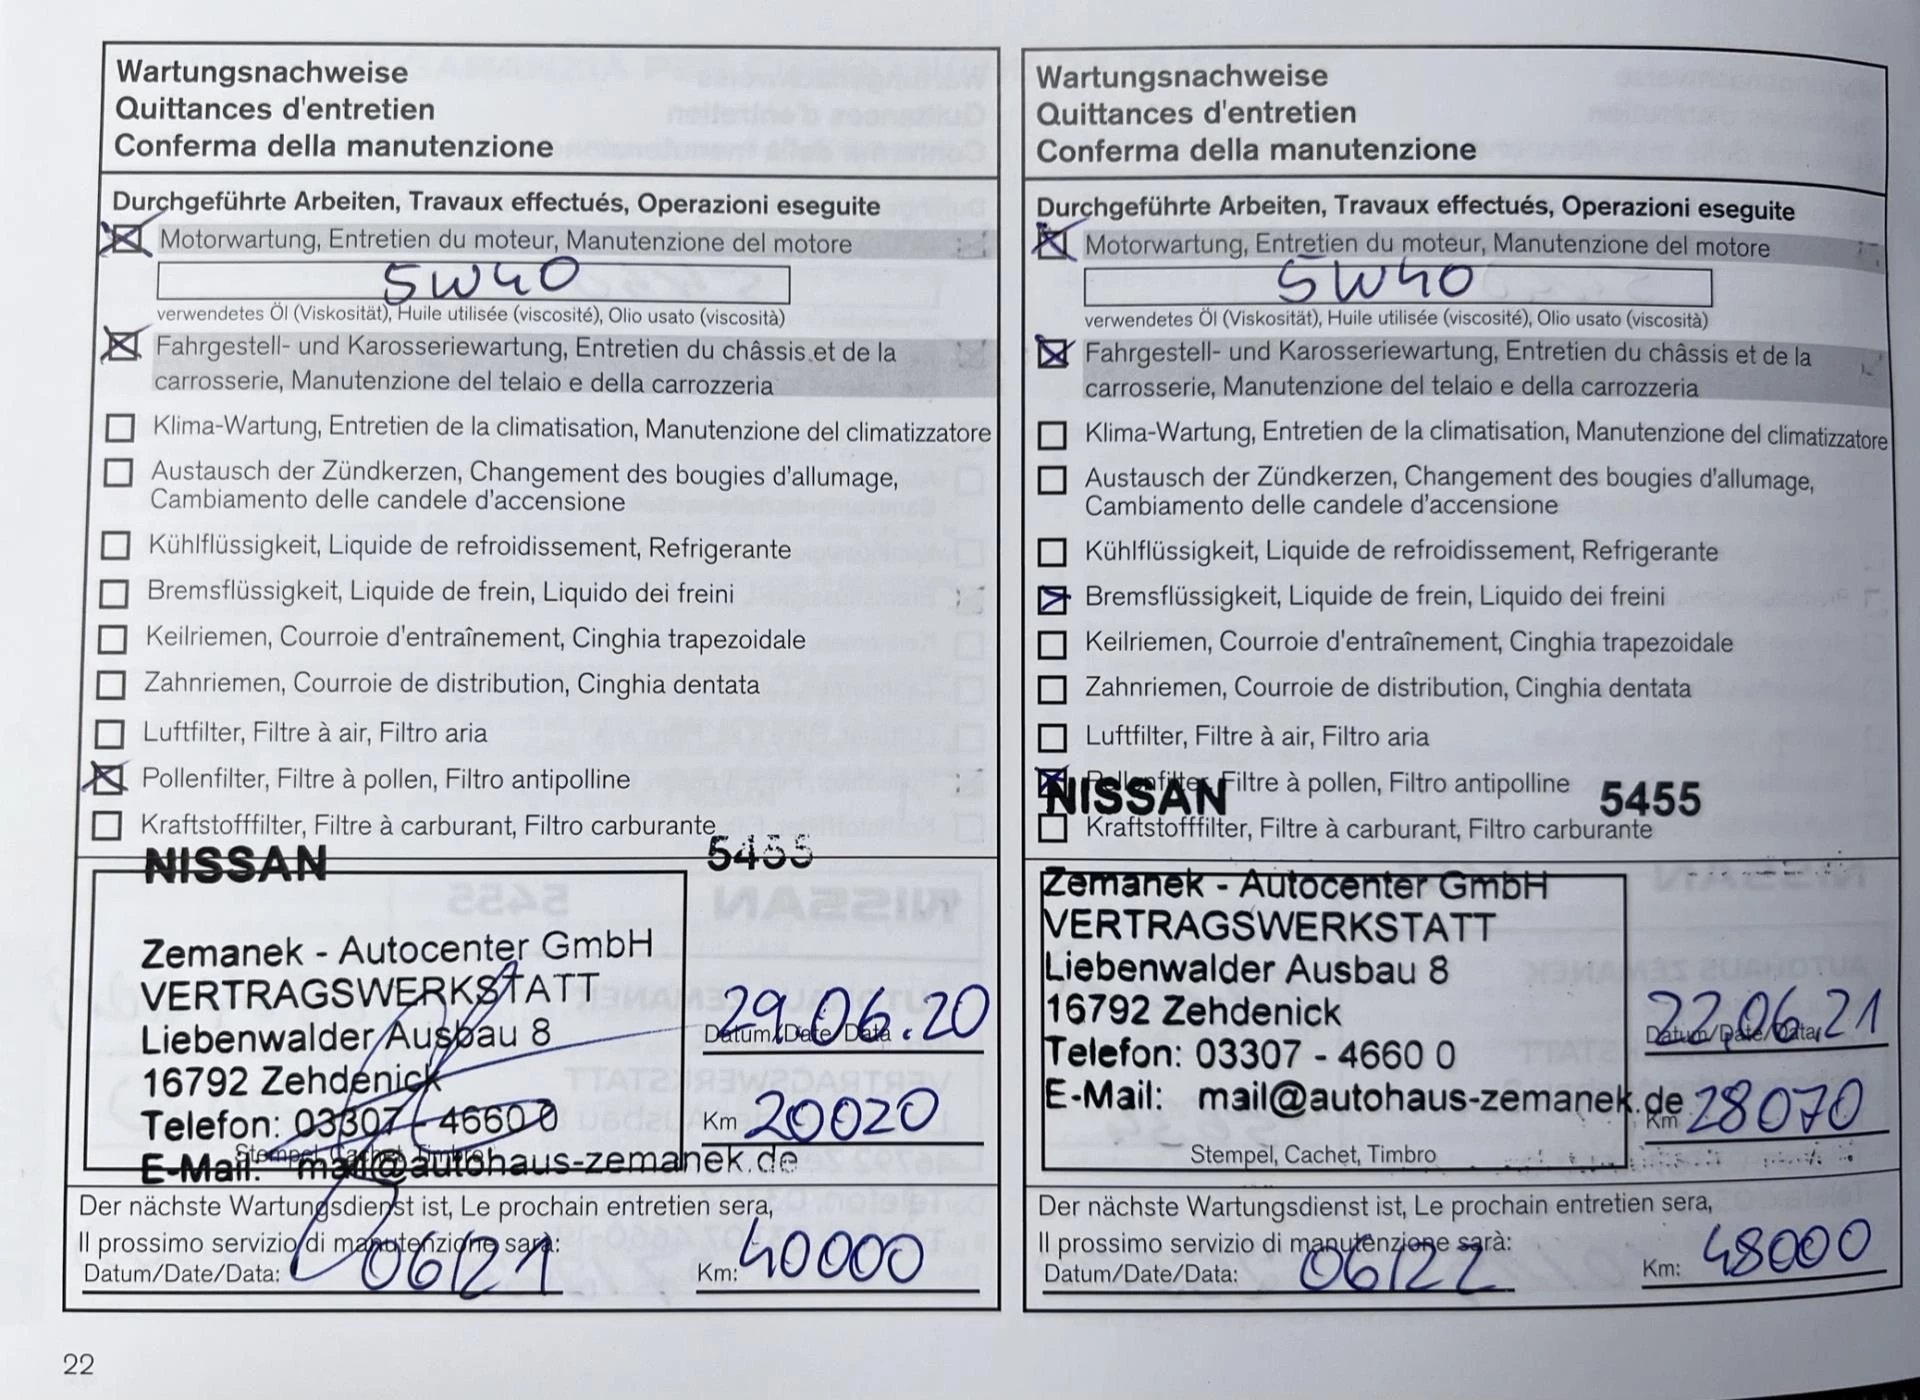 Wartungsnachweise
Quittances d'entretien
Conferma della manutenzione
Durchgeführte Arbeiten, Travaux effectués, Operazioni eseguite
Motorwartung, Entretien du moteur, Manutenzione del motore
5W40
verwendetes Öl (Viskosität), Huile utilisée (viscosité), Olio usato (viscosità)
Fahrgestell- und Karosseriewartung, Entretien du châssis et de la
carrosserie, Manutenzione del telaio e della carrozzeria
Klima-Wartung, Entretien de la climatisation, Manutenzione del climatizzatore
Austausch der Zündkerzen, Changement des bougies d'allumage,
Cambiamento delle candele d'accensione
Kühlflüssigkeit, Liquide de refroidissement, Refrigerante
Bremsflüssigkeit, Liquide de frein, Liquido dei freini
Keilriemen, Courroie d'entraînement, Cinghia trapezoidale
Zahnriemen, Courroie de distribution, Cinghia dentata
Luftfilter, Filtre à air, Filtro aria
Pollenfilter, Filtre à pollen, Filtro antipolline
Kraftstofffilter, Filtre à carburant, Filtro carburante
NISSAN 5455
Zemanek - Autocenter GmbH
VERTRAGSWERKSTATT
Liebenwalder Ausbau 8
16792 Zehdenick
Telefon: 03307 - 4660 0
Stempel, Cachet, Timbro
E-Mail: mail@autohaus-zemanek.de
29.06.20
Datum/Date/Data
Km 20020
Der nächste Wartungsdienst ist, Le prochain entretien sera,
Il prossimo servizio di manutenzione sarà:
Datum/Date/Data: 06/21 Km: 40000
22
Wartungsnachweise
Quittances d'entretien
Conferma della manutenzione
Durchgeführte Arbeiten, Travaux effectués, Operazioni eseguite
Motorwartung, Entretien du moteur, Manutenzione del motore
5W40
verwendetes Öl (Viskosität), Huile utilisée (viscosité), Olio usato (viscosità)
Fahrgestell- und Karosseriewartung, Entretien du châssis et de la
carrosserie, Manutenzione del telaio e della carrozzeria
Klima-Wartung, Entretien de la climatisation, Manutenzione del climatizzatore
Austausch der Zündkerzen, Changement des bougies d'allumage,
Cambiamento delle candele d'accensione
Kühlflüssigkeit, Liquide de refroidissement, Refrigerante
Bremsflüssigkeit, Liquide de frein, Liquido dei freini
Keilriemen, Courroie d'entraînement, Cinghia trapezoidale
Zahnriemen, Courroie de distribution, Cinghia dentata
Luftfilter, Filtre à air, Filtro aria
Pollenfilter, Filtre à pollen, Filtro antipolline
NISSAN 5455
Kraftstofffilter, Filtre à carburant, Filtro carburante
Zemanek - Autocenter GmbH
VERTRAGSWERKSTATT
Liebenwalder Ausbau 8
16792 Zehdenick
Telefon: 03307 - 4660 0
E-Mail: mail@autohaus-zemanek.de
Stempel, Cachet, Timbro
22.06.21
Datum/Date/Data
Km 28070
Der nächste Wartungsdienst ist, Le prochain entretien sera,
Il prossimo servizio di manutenzione sarà:
Datum/Date/Data: 06/22 Km: 48000